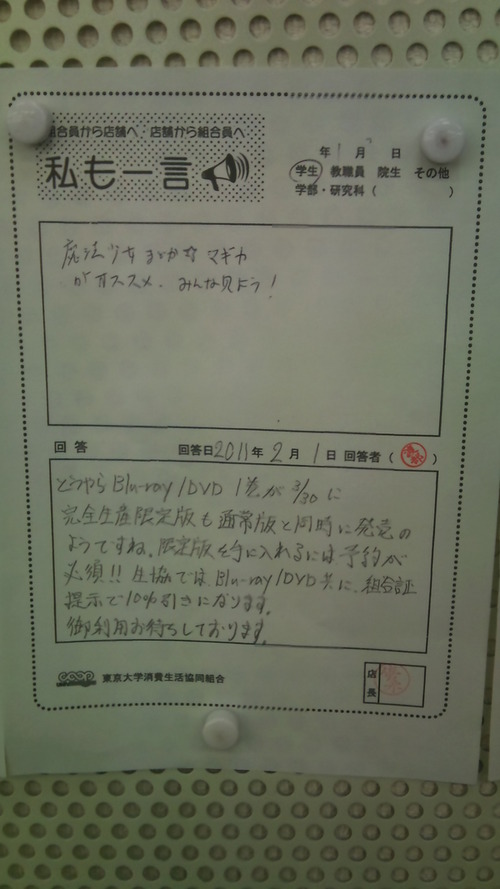 組合員から店舗へ 店舗から組合員へ
私も一言
年 1月 日
学生 教職員 院生 その他
学部・研究科 ( )
魔法少女まどかマギカ
がオススメ. みんな見よう!
回答 回答日2011年2月1日 回答者 ( )
どうやらBlu-ray/DVD 1巻が3/30に
完全生産限定版も通常版と同時に発売の
ようですね. 限定版を手に入れるには予約が
必須!! 生協ではBlu-ray/DVD共に、組合証
提示で10%引きになります。
御利用お待ちしております。
coop 東京大学消費生活協同組合
店長